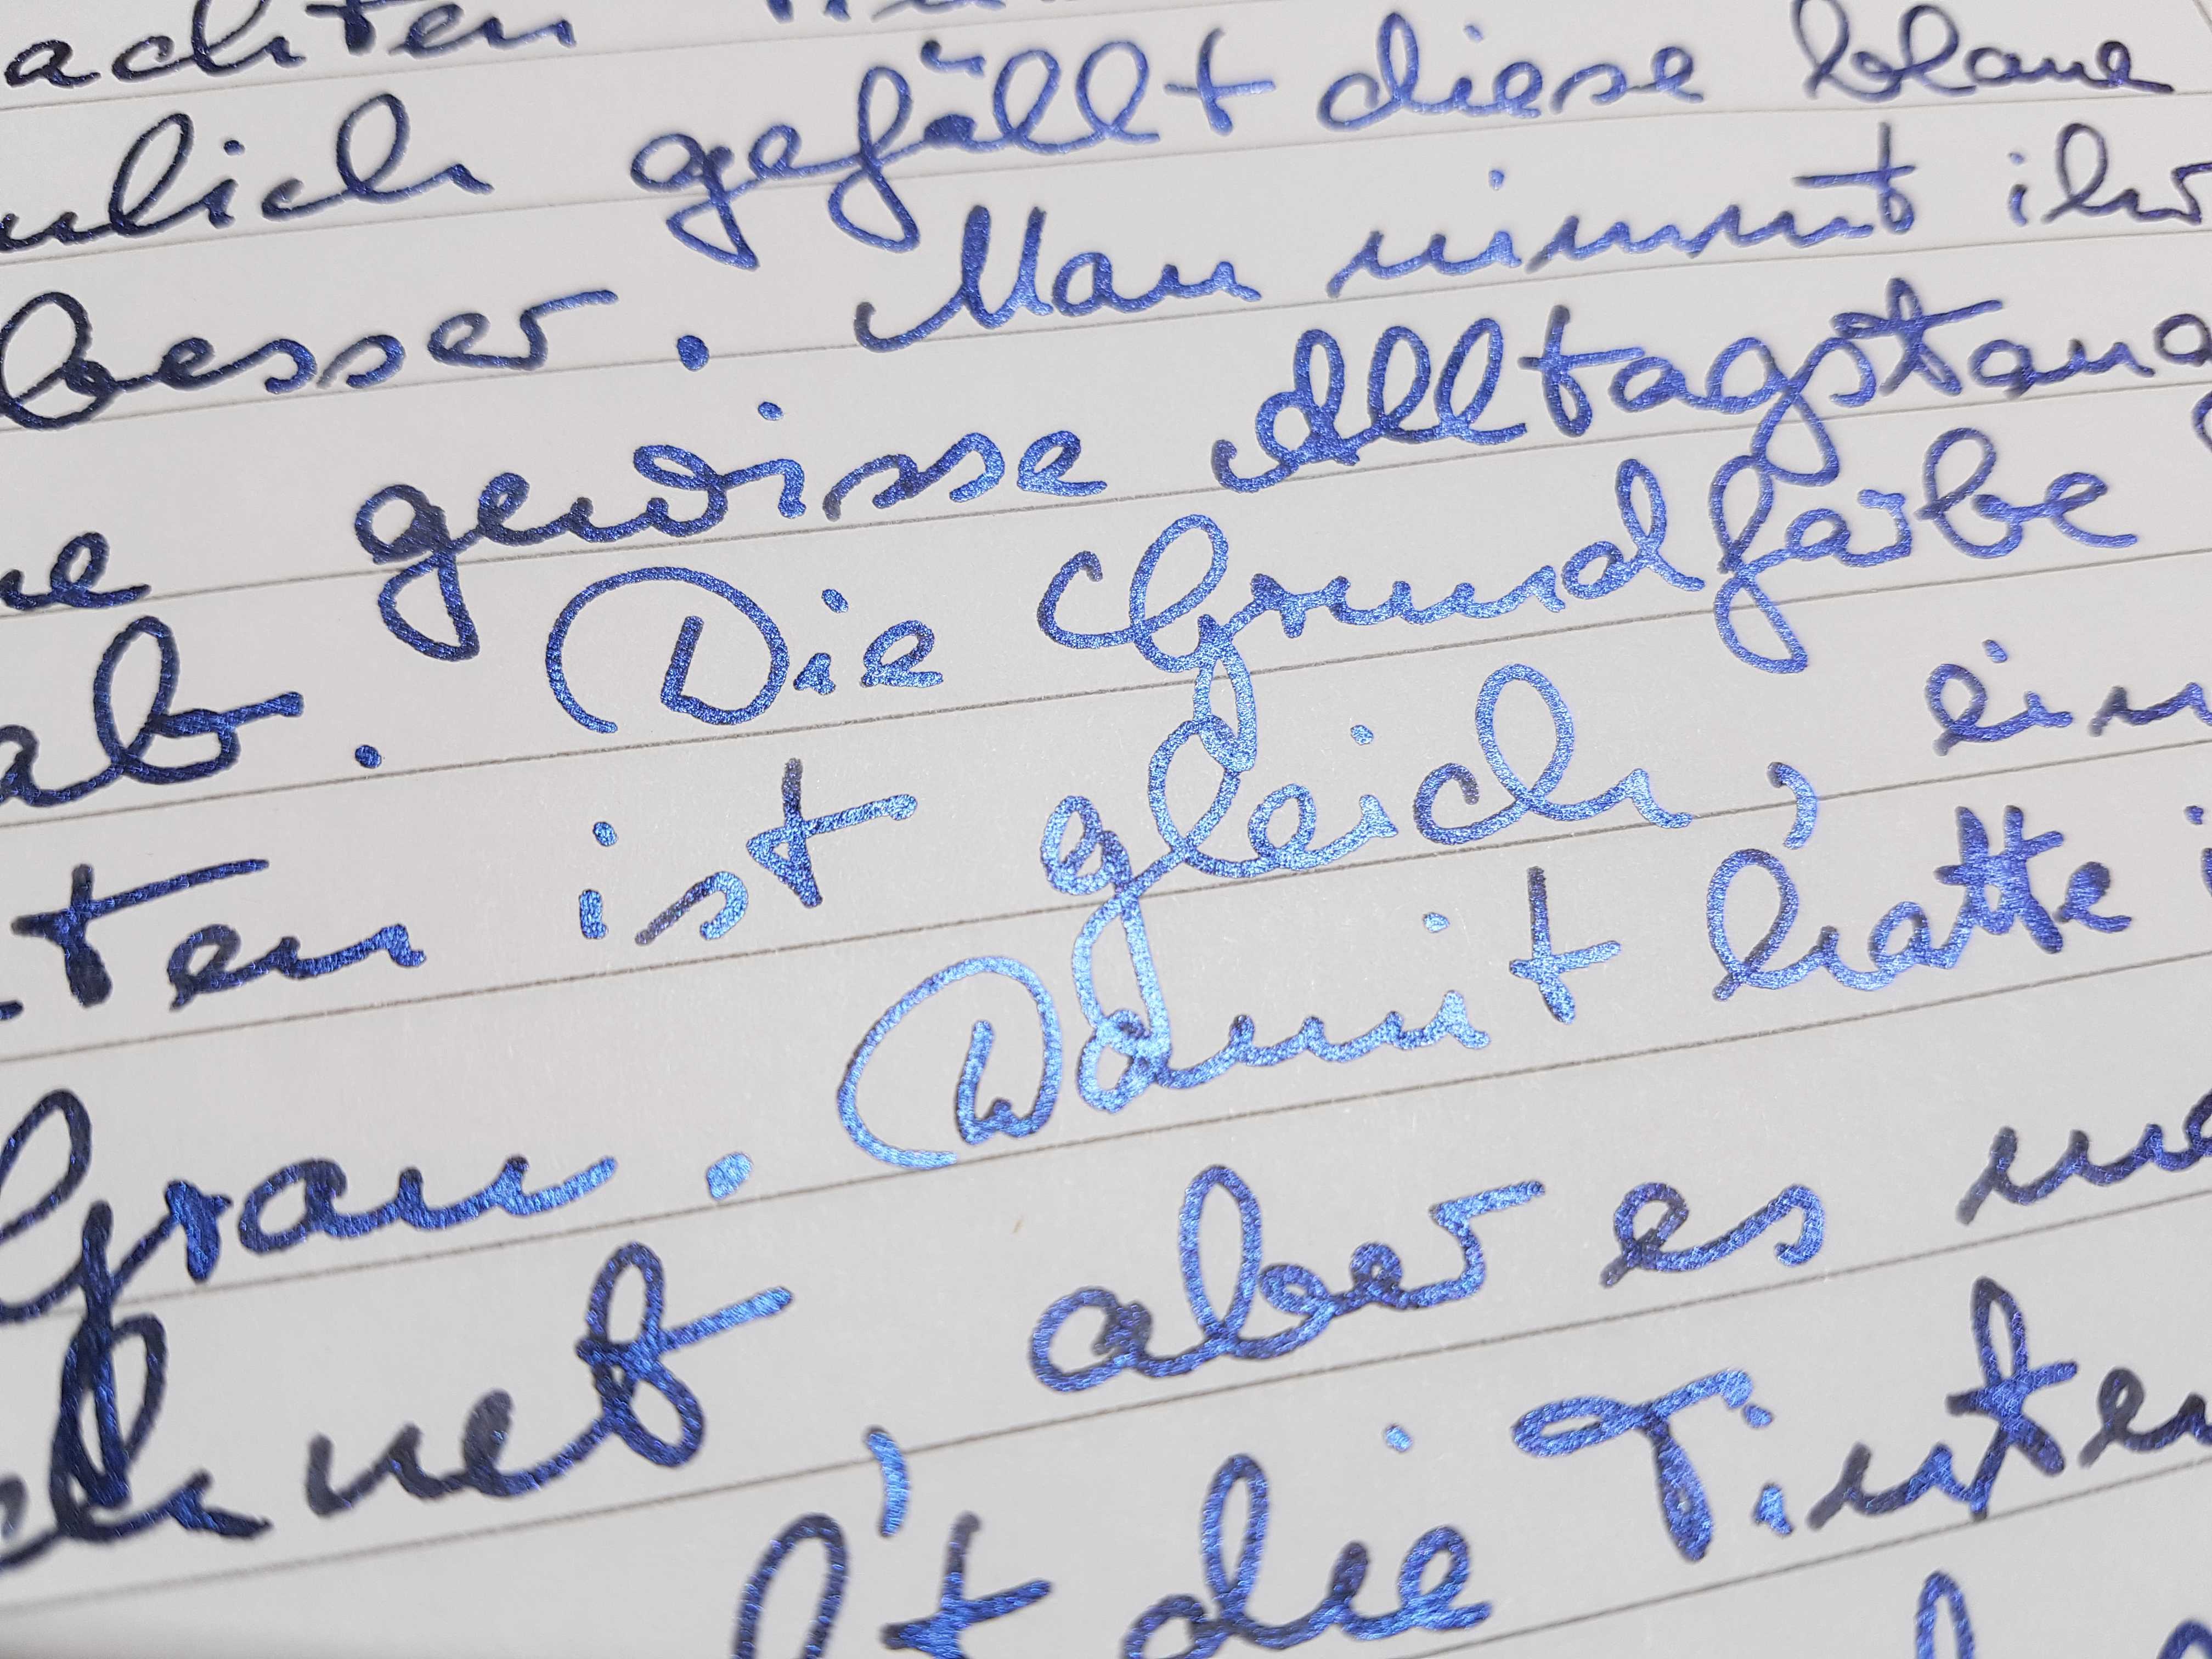 achten
nlich gefällt diese blaue
besser. Man nimmt ihr
ne gewisse Alltagstaug
ab. Die Grundfarbe
ten ist gleich, ein
Grau. Damit hatte i
chnet, aber es
lt die Tinten